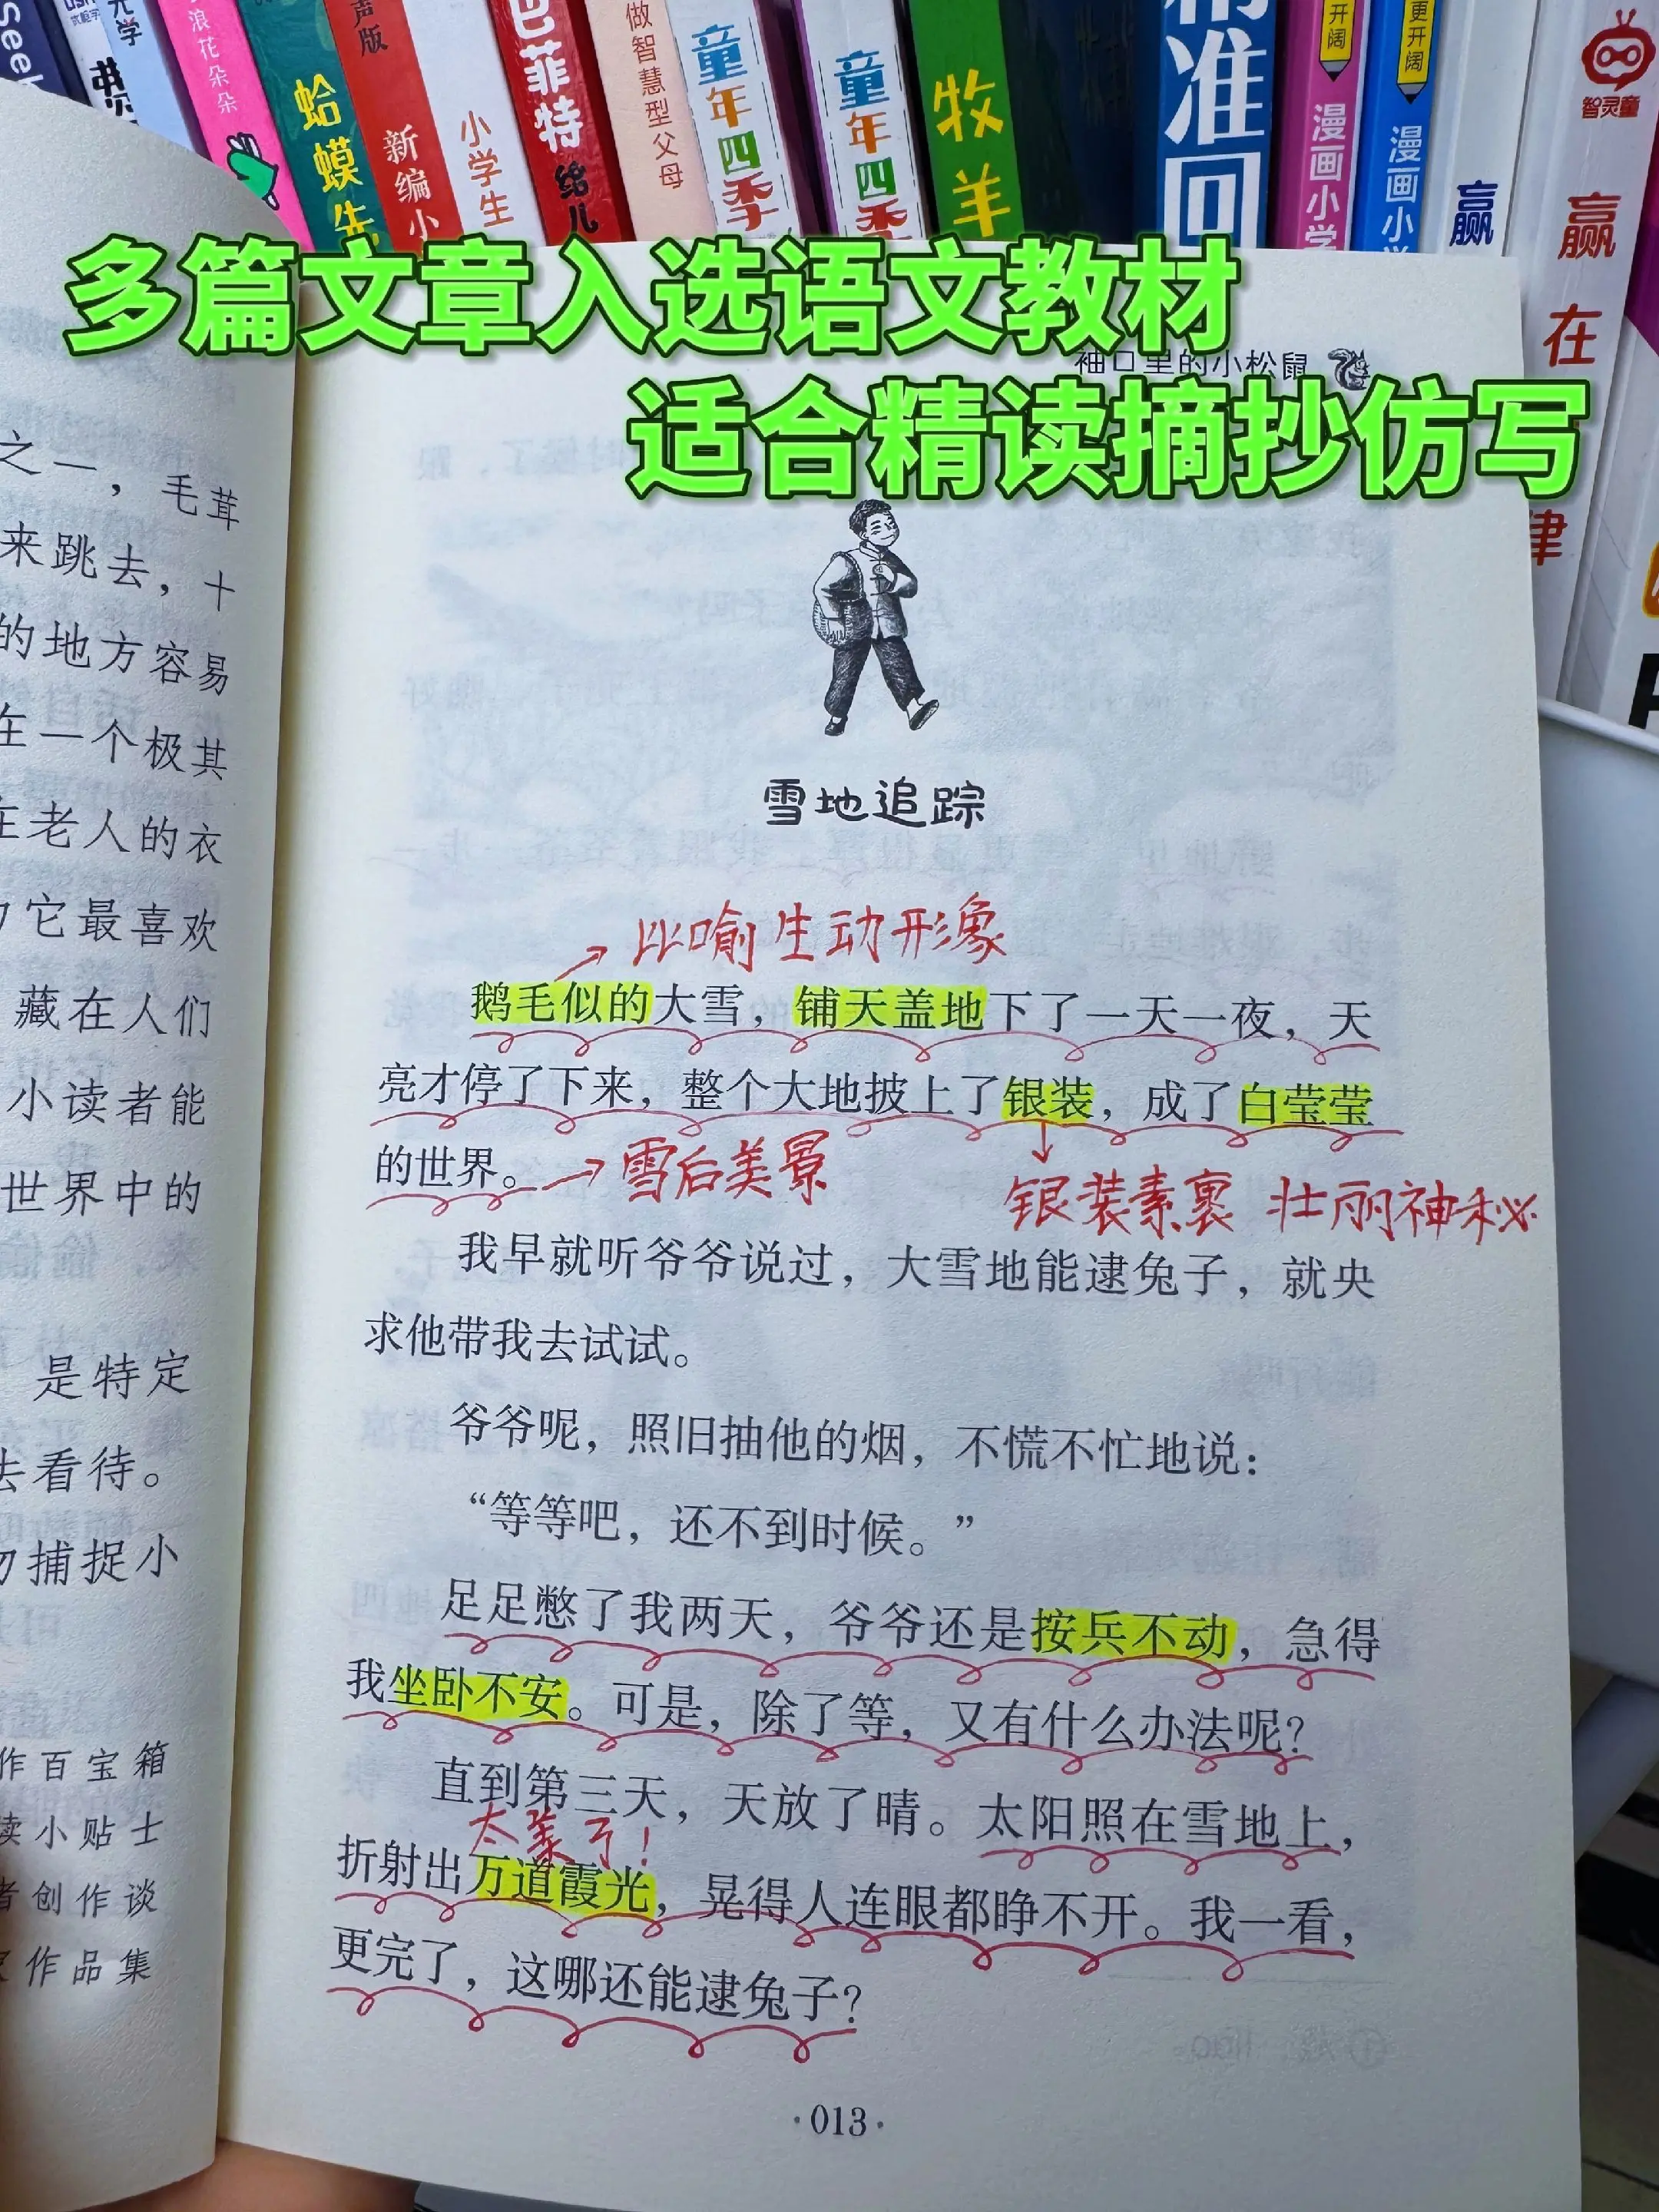 seek
光学
浪花朵朵
蛤蟆先
声版
新编小
小学生
巴菲特
给儿
做智慧型父母
童年四季
童年四季
牧羊
精准回
开阔
漫画小学
更开阔
漫画小学
赢
智灵童
赢在
律
多篇文章入选语文教材
袖口里的小松鼠
适合精读摘抄仿写
之一，毛茸
来跳去，十
的地方容易
在一个极其
在老人的衣
它最喜欢
藏在人们
小读者能
世界中的
来，偷偷
是特定
去看待。
捕捉小
作百宝箱
读小贴士
者创作谈
作品集
雪地追踪
比喻生动形象
鹅毛似的大雪，铺天盖地下了一天一夜，天
亮才停了下来，整个大地披上了银装，成了白莹莹
的世界。
雪后美景
银装素裹 壮丽神秘
我早就听爷爷说过，大雪地能逮兔子，就央
求他带我去试试。
爷爷呢，照旧抽他的烟，不慌不忙地说：
“等等吧，还不到时候。”
足足憋了我两天，爷爷还是按兵不动，急得
我坐卧不安。可是，除了等，又有什么办法呢？
直到第三天，天放了晴。太阳照在雪地上，
太美了！
折射出万道霞光，晃得人连眼都睁不开。我一看，
更完了，这哪还能逮兔子？
·013·